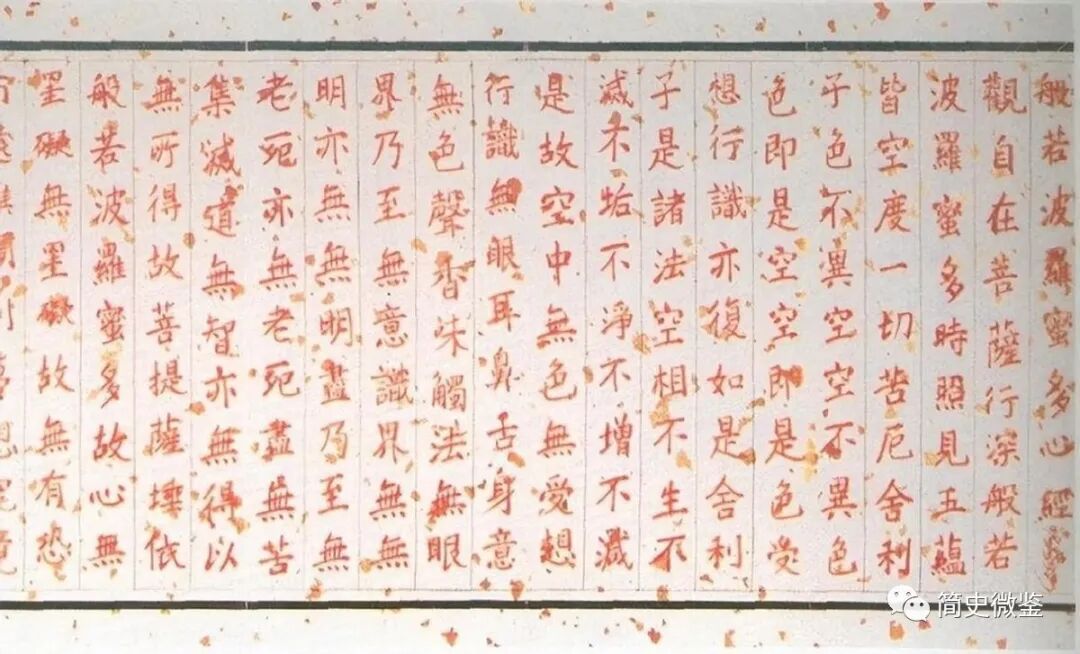 般若波羅蜜多心經
觀自在菩薩行深般若
波羅蜜多時照見五蘊
皆空度一切苦厄舍利
子色不異空空不異色
色即是空空即是色受
想行識亦復如是舍利
子是諸法空相不生不
滅不垢不淨不增不減
是故空中無色無愛想
行識無眼耳鼻舌身意
無色聲香味觸法無眼
界乃至無意識界無無
明亦無無明盡乃至無
老死亦無老死盡無苦
集滅道無智亦無得以
無所得故菩提薩埵依
般若波羅蜜多故心無
罣礙無罣礙故無有恐
简史微鉴